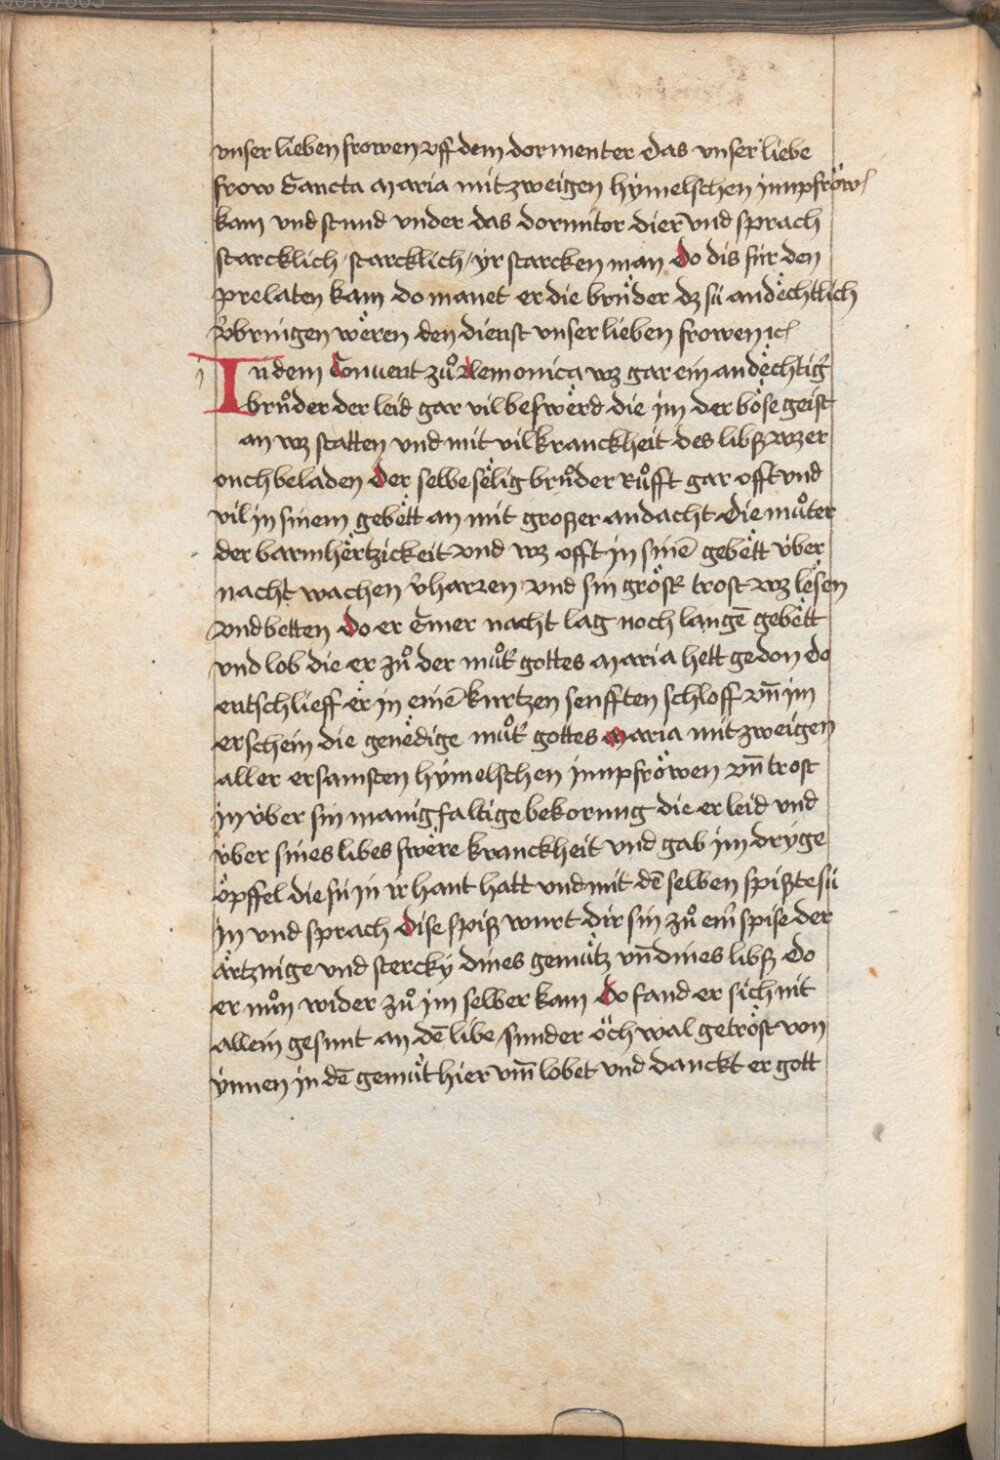 vnser lieben frowen vff dem dormenter das vnser liebe
frow Sancta maria mit zweigen hymelschen junpfröw̄
kam vnd stund vnder das dormtor dier vnd sprach
starcklich / starcklich / yr starcken man do dis für den
prelaten kam do manet er die brůder dz sü andëchtlich
v̓bringen wëren den dienst vnser lieben frowen ⁊c̄
In dem Conuent zů Lemonica wz gar ein andëchtig̓
brůder der leid gar vil beswërd die jm der böse geist
an wz statten vnd mit vil kranckheit des libß wz er
ouch beladen Der selbe sëlig brůder Růfft gar offt vnd
vil in sinem gebëtt an mit großer andacht die můter
der barmhërtzickeit vnd wz offt jn sinē gebëtt v́ber
nacht wachen v̓harren vnd sin gröst̓ trost wz lësen
vnd betten Do er Einer nacht lag noch langē gebëtt
vnd lob die er zů der můt̓ gottes maria hett gedon do
entschlieff ër jn einē kurtzen senfften schloff vn̄ im
erschein die genëdige můt̓ gottes maria mit zweigen
aller ersamsten hymelschen junpfröwen vn̄ trost
jn v́ber sin manigfaltige bekorung die er leid vnd
v́ber sines libes swëre kranckheit vnd gab jm dryge
öpffel die sü in ir hant hatt vnd mit dē selben spißte sü
jn vnd sprach dise spiß wurt dir sin zů ein̓ spise der
ärtznige vnd stercky dines gemütz vn̄ dines libß do
er nůn wider zů jm selber kam Do fand er sich nit
allein gesunt an dē libe / sunder öch wal getröst von
ynnen jn dē gemüt hier vm̄ lobet vnd danckt er gott